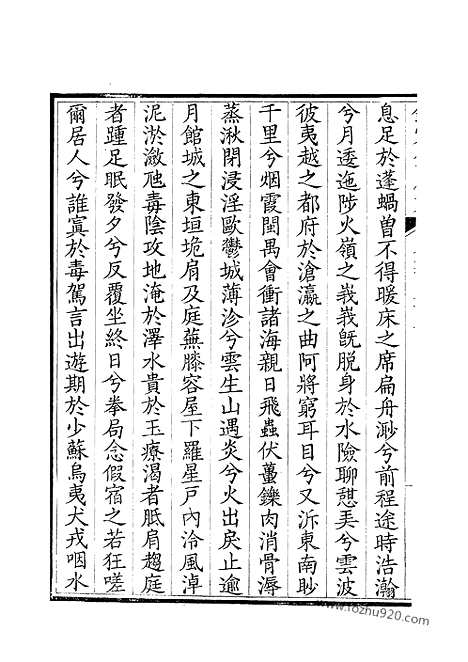 息足於蓬蝸曾不得暖床之席扁舟渺兮前程途時浩瀚
兮月逶迤陟火嶺之峩峩旣脱身於水險聊憇兮雲波
彼夷越之都府於滄瀛之曲阿將窮耳目兮又泝東南眇
千里兮烟霞閩禺會衝諸海親日飛蟲伏蠆鑠肉消骨溽
蒸湫閉浸淫歐鬱城薄沴兮雲生山遇炎兮火出戾止逾
月館城之東垣垝肩及庭蕪膝容屋下羅星戸內泠風淖
泥淤潋虺毒陰攻地淹於澤水貴於玉療渴者胝肩趨庭
者踵足眠發夕兮反覆坐終日兮拳局念假宿之若狂嗟
爾居人兮誰寘於毒駕言出遊期於少蘇烏夷犬戎咽水
www.10zhu920.com